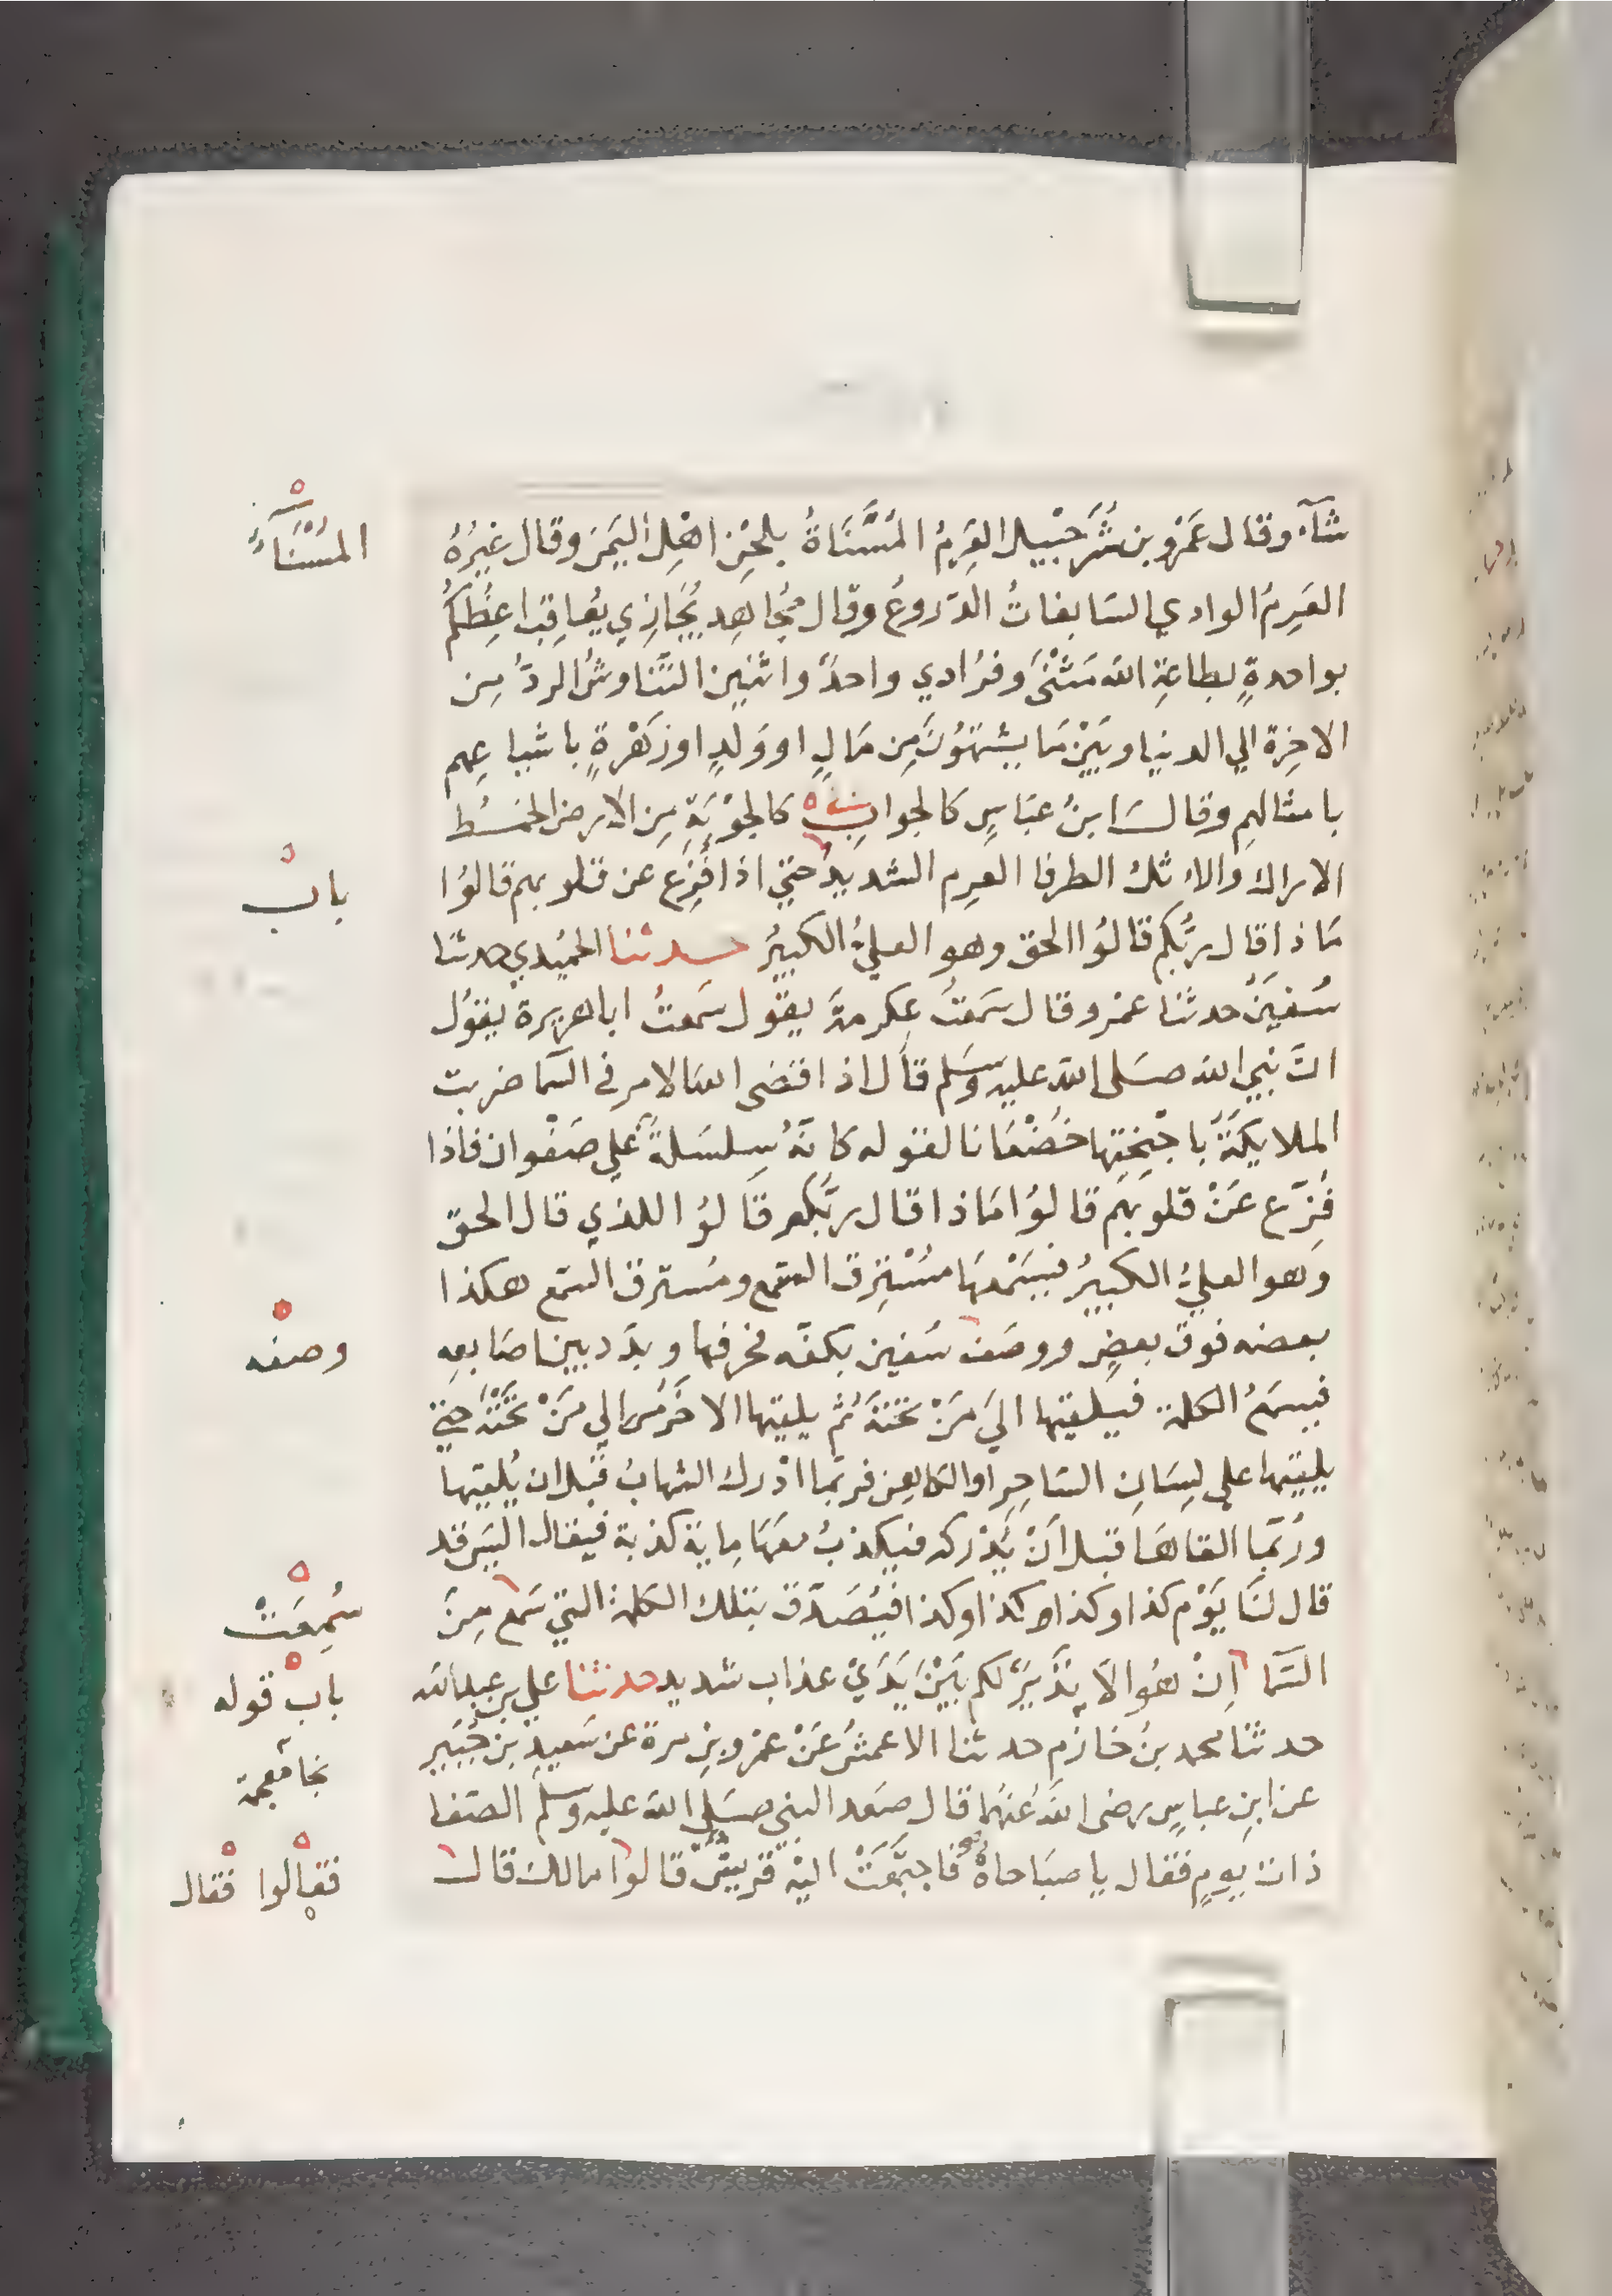 شآء وقال عَمْرو بن شُرَحْبِيل العَرِمُ المُسَّنَاةُ بلحْنِ اهْلِ اليَمَنِ وقال غيرُهُ
العَرِمُ الوادي السَابغاتُ الدّروعُ وقال مُجاهِد يُجَازِي يُعاقِبُ اعِظُكُمْ
بواحدةٍ بطاعَةِ الله مَثْنَى وَفُرَادي واحدً واثنين التَّناوشُ الردُّ مِن
الاخِرة الي الدنيا وبَيْنَ مَا يشتهَوُنَ مِن مَالٍ او وَلَدٍ او زَهْرةٍ باشياعِهم
بامثالهم وقال ابنُ عبَاسٍ كالجوابِ كالجوْبَةِ مِن الارض الخمْطُ
الاراك والاثلُ الطرفا العرِم الشديدُ حَتي اذا فُزِّع عن قلوبهم قالوُا
مَاذا قال ربُّكم قالوُا الحق وهو العليُّ الكبيرُ حدثنا الحميُدي حدثنا
سُفينَ حدثنا عمْرو قال سَمعَتُ عِكرمة يقول سَمعتُ ابا هريرة يقوُل
انَّ نبيَ الله صَلى الله عليه وسَلم قال اذا قضى الله الامر في السَما ضربت
الملايكَةُ باجْنِحَتِها خُضْعَانا لقوله كانهُ سِلسَلةٌ عَلي صَفْوان فاذا
فُزّع عَنْ قلوبهَم قالوُا مَاذا قال ربُّكم قَالوُا للذي قال الحقّ
وَهو العليُّ الكبيرُ فيسَمْعهَا مُسْتِرق السّمع ومُسترق السّمع هكذا
بعضه فوق بعضٍ ووصَف سُفين بكفّه فحرفها وبدّد بين اصَابعِه
فيسمَعُ الكلمة فيلقيها اليَ مَنْ تحْتَهُ ثُم يلقيها الاخَرُ الي مَنْ تَحْتَهُ حَتي
يلقيَها علي لِسَانِ السَاحِرِ او الكاهِن فربّما ادْرك الشهابُ قبْل ان يُلقيَها
ورُبّما القاهَا قبل اَنْ يُدْركه فيكذبُ معَهَا ماية كذبة فيقال اليسَ قد
قال لنَا يَوْم كذا وكذا كذا وكذا فيُصَدّق بتلك الكلمة التي سَمع مِنَ
السَّما اِنْ هُوَ الاَّ نذَيرٌ لكم بَيْنَ يَدَيْ عذاب شديد حدثنا علي بن عبد الله
حدثنا محمد بنُ خازم حدثنا الاعمشُ عَنْ عمْرو بنِ مرة عن سَعيدِ بن جُبَيرٍ
عن ابنِ عباسٍ رضى الله عَنهُما قال صَعد النبي صَلى الله عليه وسلم الصّفا
ذات يومٍ فقال يا صبَاحاهْ فاجتمَعَتْ اليْه قريشٌ قالوا مالك قال
المسُنَاةُ
باب
وصفه
سُمِعَتْ
باب قوله
بخا معجمة
فقالوا فقال